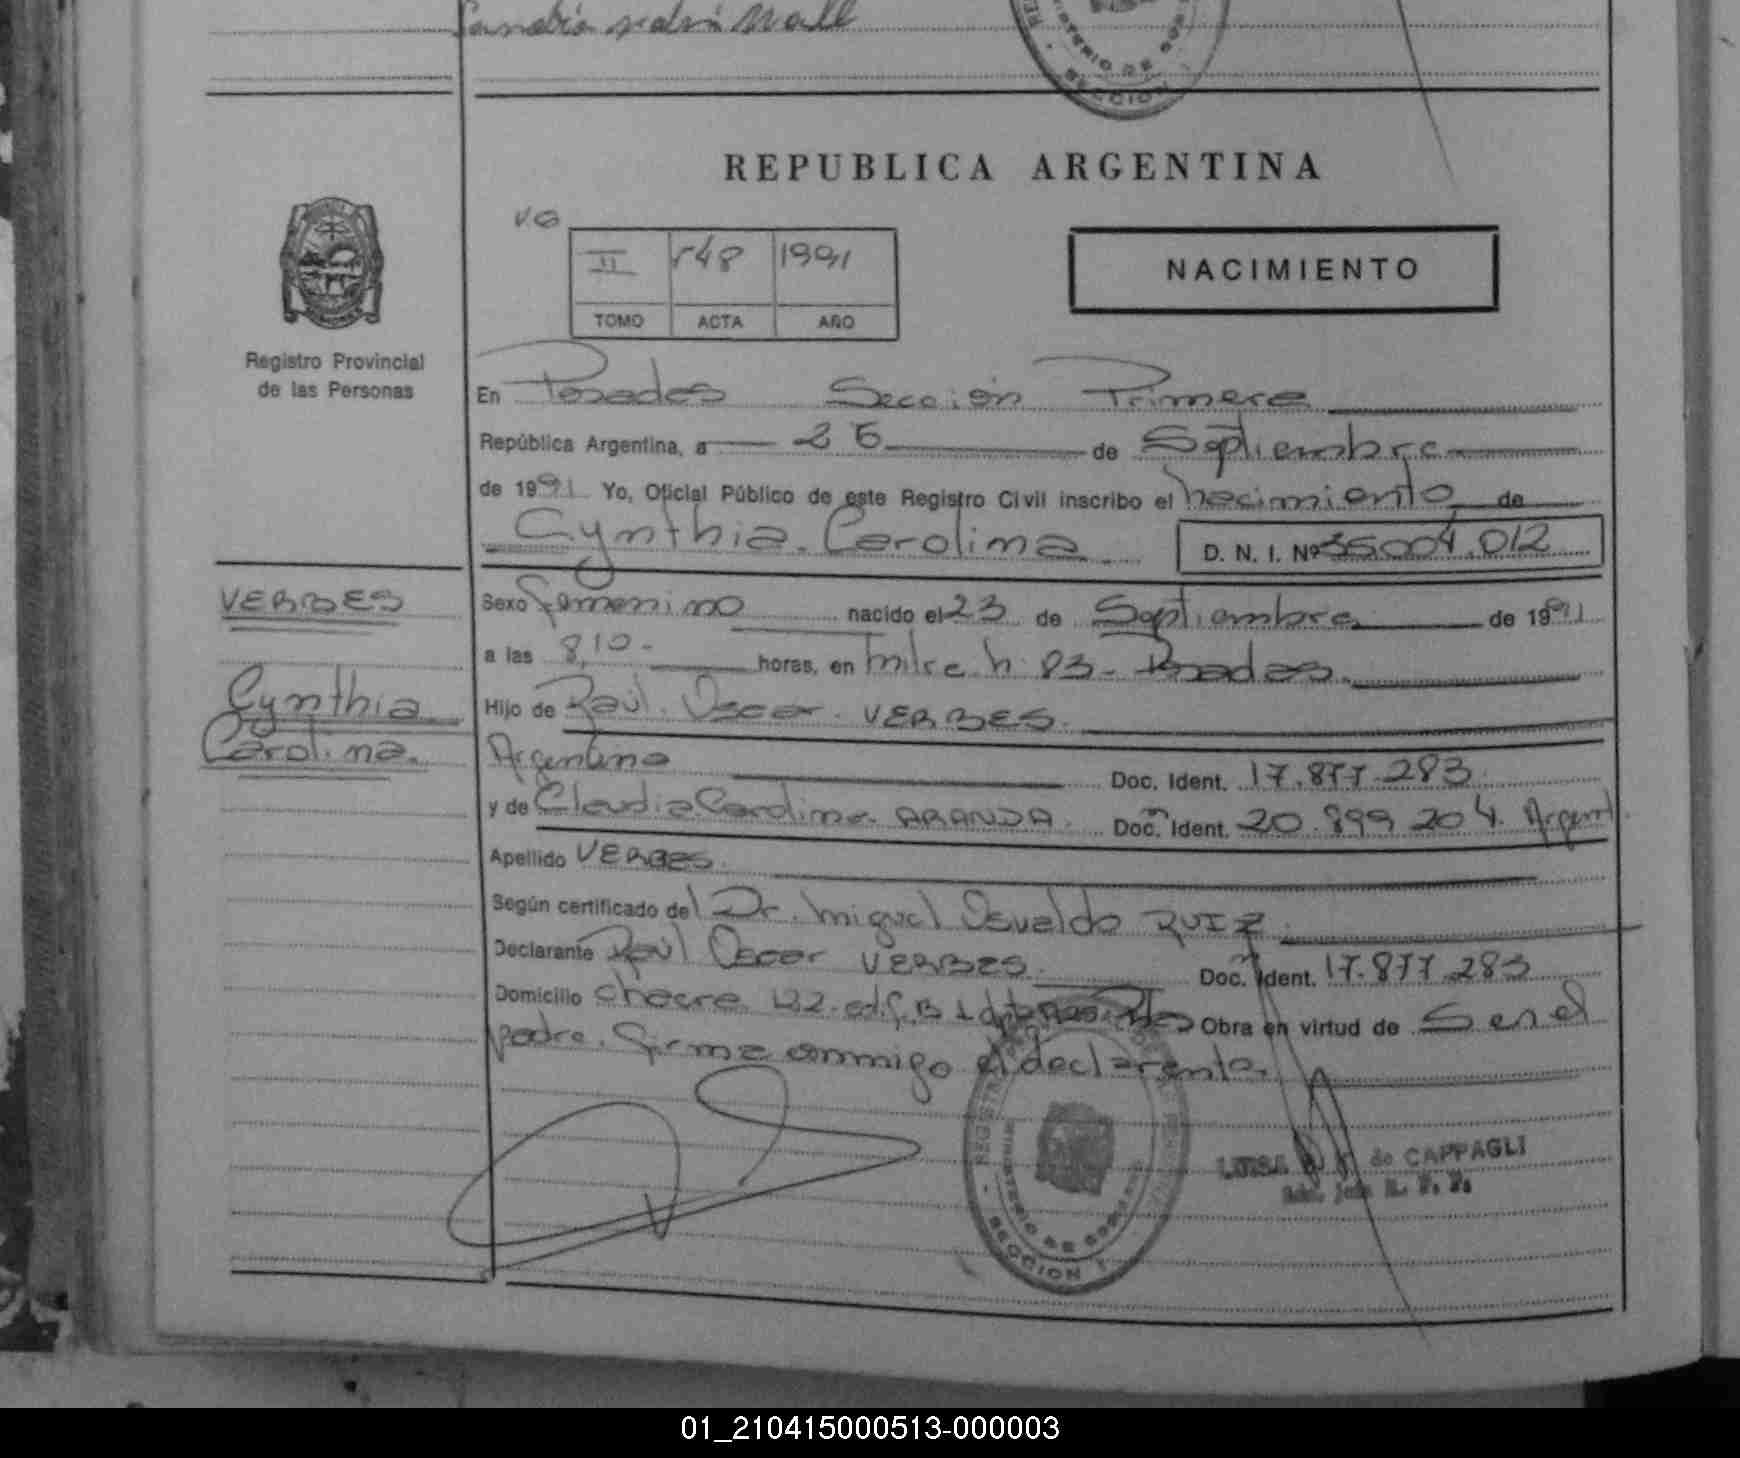 REPUBLICA ARGENTINA
V.G
II 148 1991
TOMO ACTA AÑO
NACIMIENTO
Registro Provincial
de las Personas
En Posadas Sección Primera
República Argentina, a 26 de Septiembre
de 1991 Yo, Oficial Público de este Registro Civil inscribo el nacimiento de
Cynthia Carolina
D. N. I. Nº 36004.012
VERBES
Cynthia
Carolina.
Sexo femenino nacido el 23 de Septiembre de 1991
a las 8,10- horas, en Mitre n. 83- Posadas.
Hijo de Raúl Oscar VERBES.
Argentino Doc. Ident. 17.877.283
y de Claudia Carolina ARANDA. Doc. Ident. 20.899.204. Argent
Apellido VERBES.
Según certificado del Dr. Miguel Osvaldo RUIZ
Declarante Raúl Oscar VERBES. Doc. Ident. 17.877.283
Domicilio Chacra 122 Obra en virtud de Ser el
padre. Firma conmigo el declarante.
de CAPPAGLI
SECCION
01_210415000513-000003